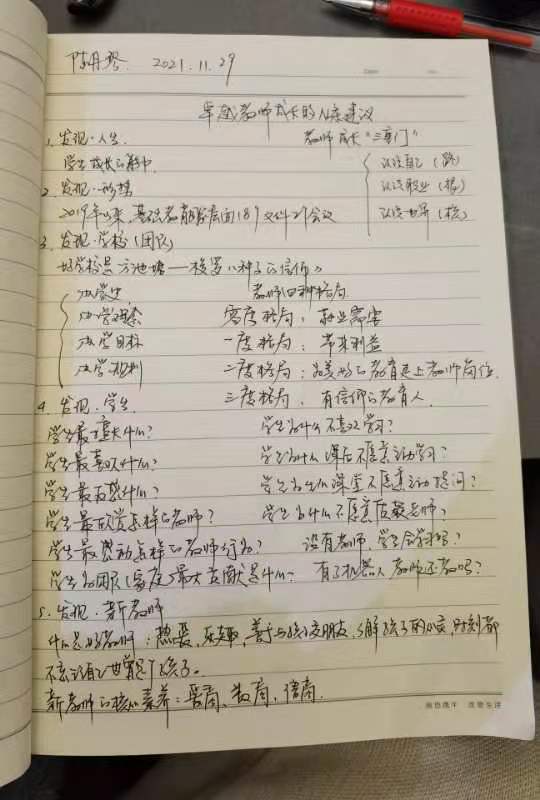 陈丹琴 2021.11.29
卓越教师成长的八条建议
1. 发现·人生 教师成长“三部门”
学生成长的解中 认识自己(跳)
2. 发现·形势 认识职业(根)
2019年以来,基础教育教育层面18个文件、4个会议 认识世界(核)
3. 发现·学校(团队)
好学校是方池塘——梭罗《种子的信仰》
办学史 教师四种格局
办学理念 零度格局:就业需要
办学目标 一度格局:带来利益
办学规划 二度格局:美好的教育走上教师岗位
4. 发现·学生 三度格局:有信仰的教育人
学生最擅长什么? 学生为什么不喜欢学习?
学生最喜欢什么? 学生为什么课后不愿意主动学习?
学生最在想什么? 学生为什么课堂不愿意主动提问?
学生最欣赏怎样的老师? 学生为什么不愿意亲近老师?
学生最感动怎样的教师行为? 没有老师,学生会学习吗?
学生为团队(家庭)最大贡献是什么? 有了机器人教师还教吗?
5. 发现·新教师
什么是好教师:热爱,乐趣,善于与孩子交朋友,了解孩子的心灵,时刻都
不忘记自己也曾是个孩子。
新教师的核心素养:爱商,数商,信商.